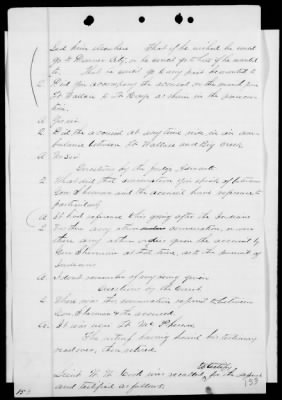 Led him elsewhere. That if he wished he could
go to Denver City, or he could go to hell if he wanted
to. That he could go to any post he wanted to
Q Did you accompany the accused on the march from
Ft Wallace to Ft Hays as shown in the prosecu-
tion.
A Yes sir
Q Did the accused at any time ride in an am-
bulance between Ft Wallace and Big Creek
A No Sir
Questions by the Judge Advocate
Q What did that conversation you speak of between
Gen Sherman and the accused have reference to
particularly
A It had reference to his going after the Indians
Q Was there any other conversation, or was
there any other orders given the accused by
Gen Sherman at that time, as to the pursuit of
Indians
A I dont remember of any being given
Questions by the Court
Q Where was the conversation referred to between
Gen Sherman & the accused
A It was near Ft McPherson
The witness having heard his testimony
read over, then retired.
to testify
Lieut W. W. Cook was recalled for the defense
and testified as follows:
153